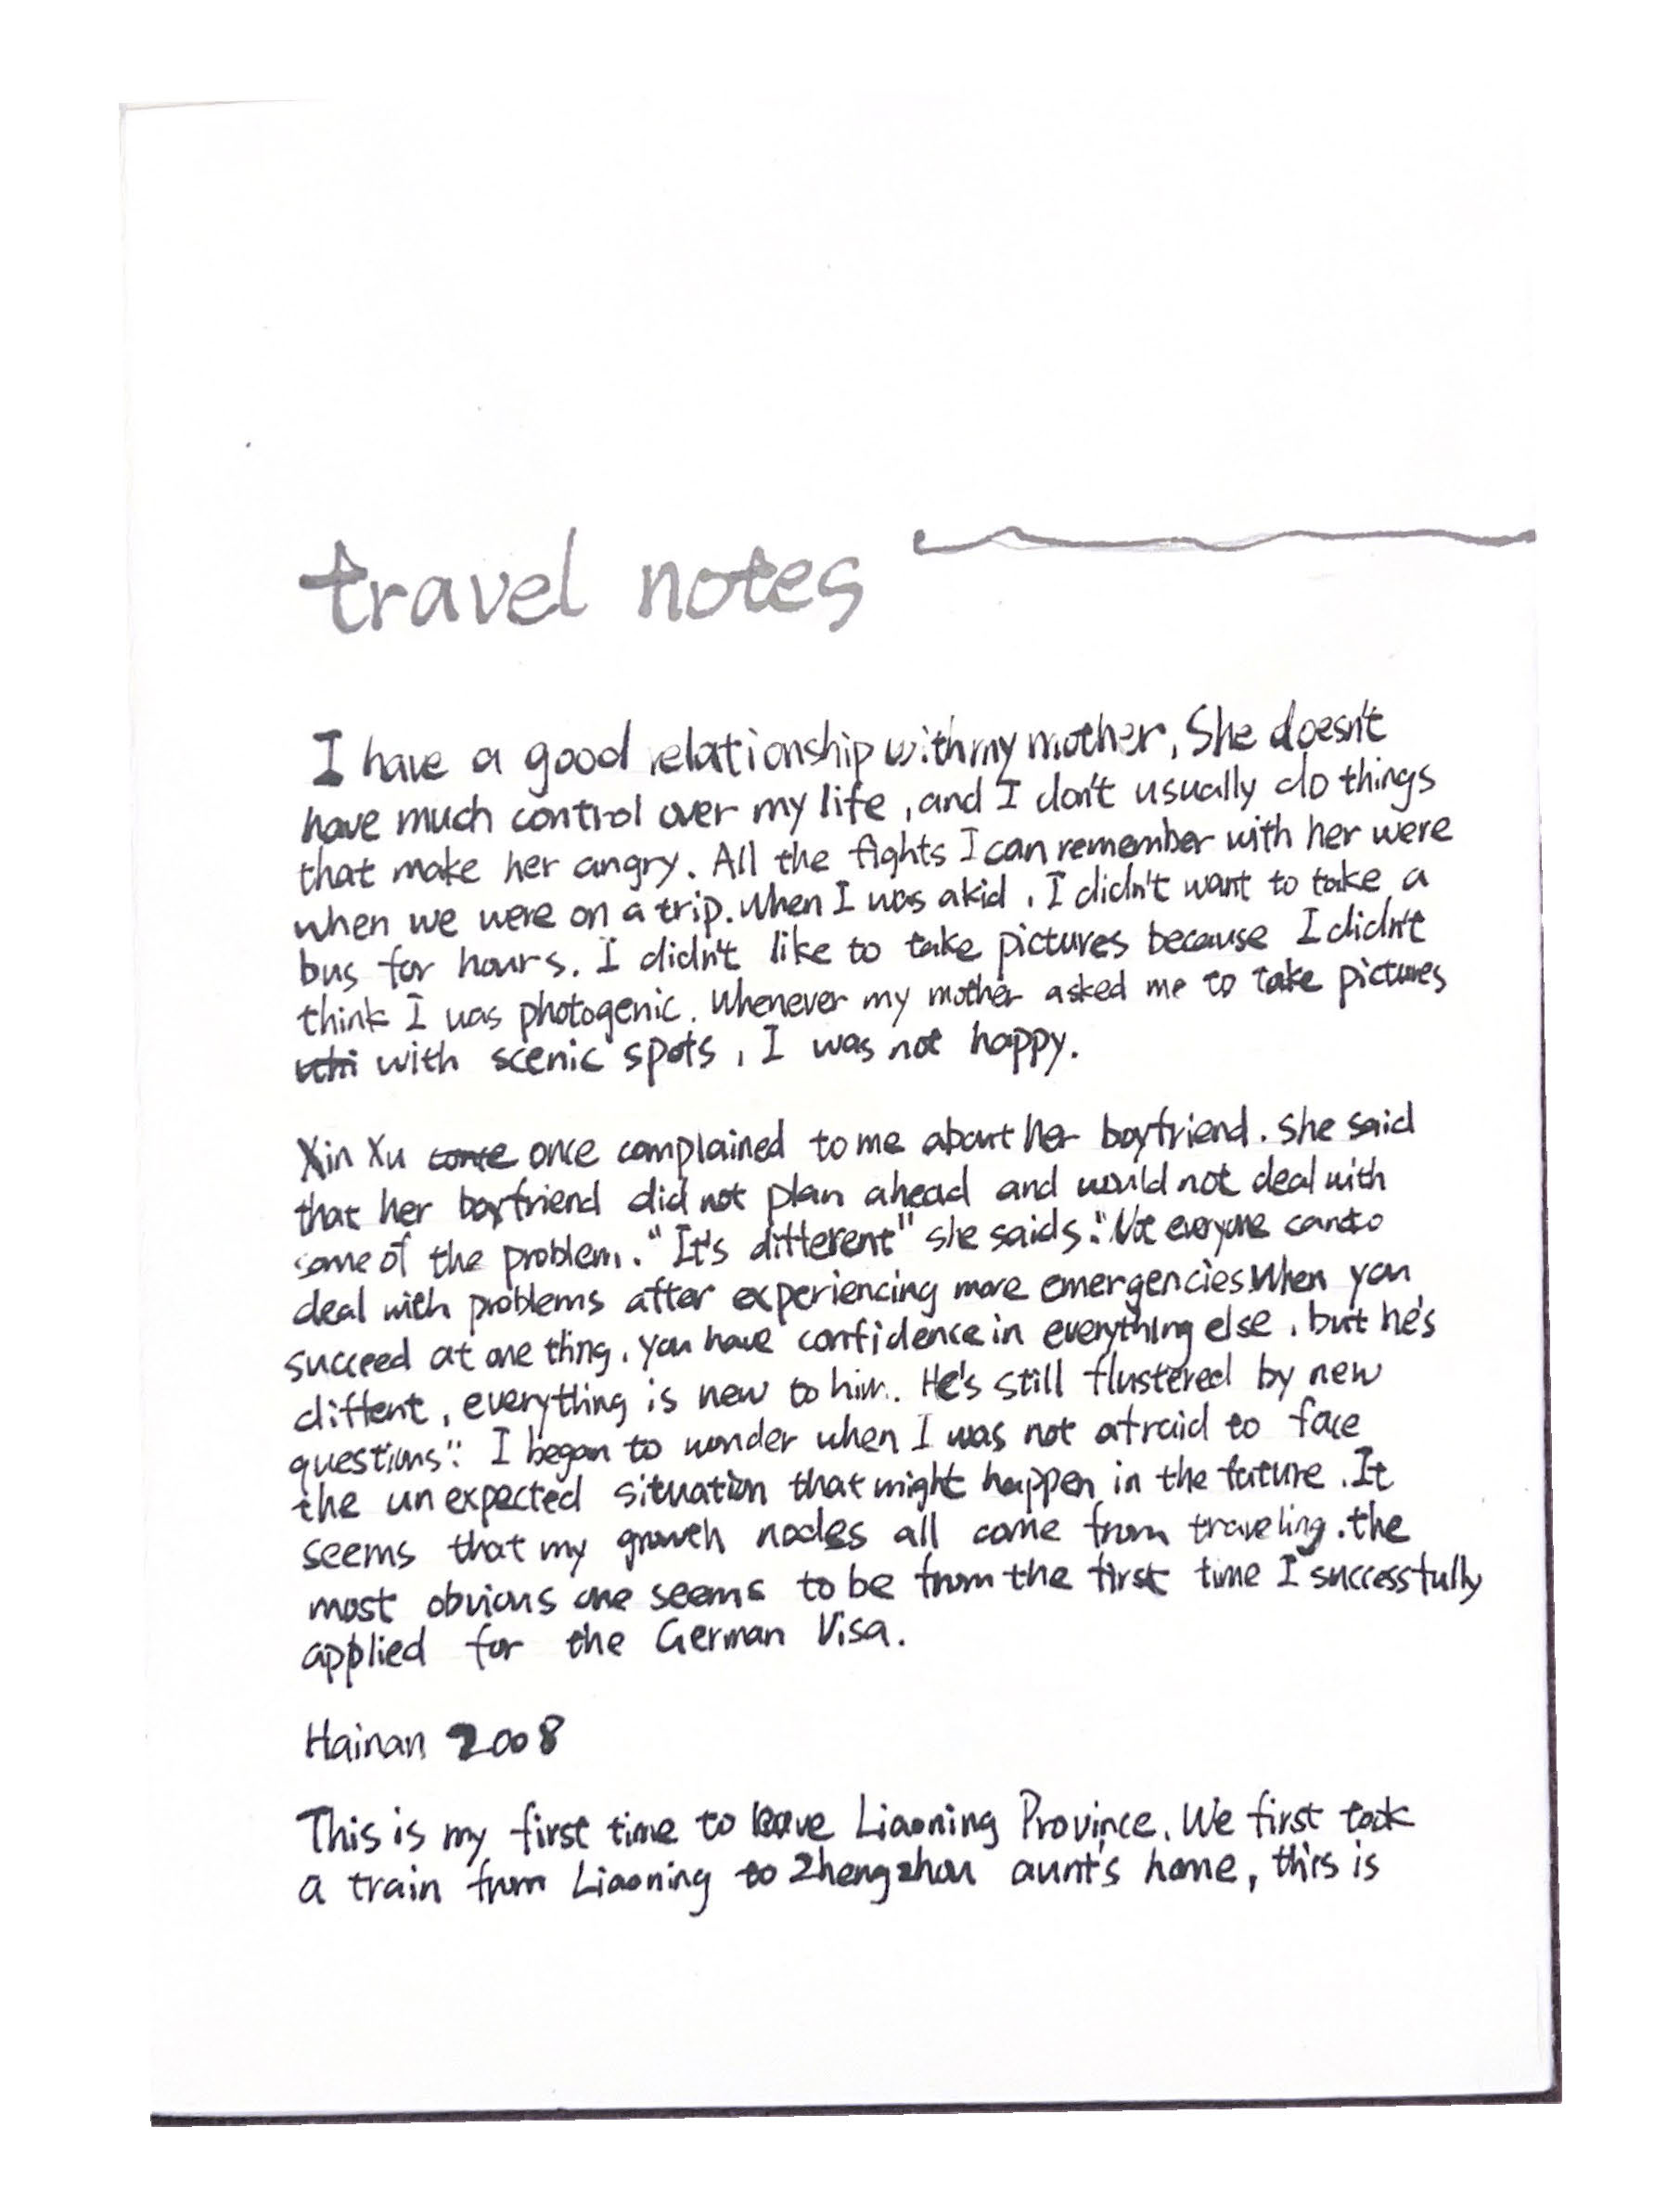 travel notes
I have a good relationship with my mother. She doesn't
have much control over my life, and I don't usually do things
that make her angry. All the fights I can remember with her were
when we were on a trip. When I was a kid, I didn't want to take a
bus for hours. I didn't like to take pictures because I didn't
think I was photogenic. Whenever my mother asked me to take pictures
with scenic spots, I was not happy.
Xin Xu once complained to me about her boyfriend. She said
that her boyfriend did not plan ahead and would not deal with
some of the problem. "It's different" she saids: "Not everyone can
deal with problems after experiencing more emergencies. When you
succeed at one thing, you have confidence in everything else, but he's
diffent, everything is new to him. He's still flustered by new
questions." I began to wonder when I was not afraid to face
the unexpected situation that might happen in the future. It
seems that my growth nodes all come from traveling. the
most obvious one seems to be from the first time I successfully
applied for the German Visa.
Hainan 2008
This is my first time to leave Liaoning Province. We first took
a train from Liaoning to Zhengzhou aunt's home, this is